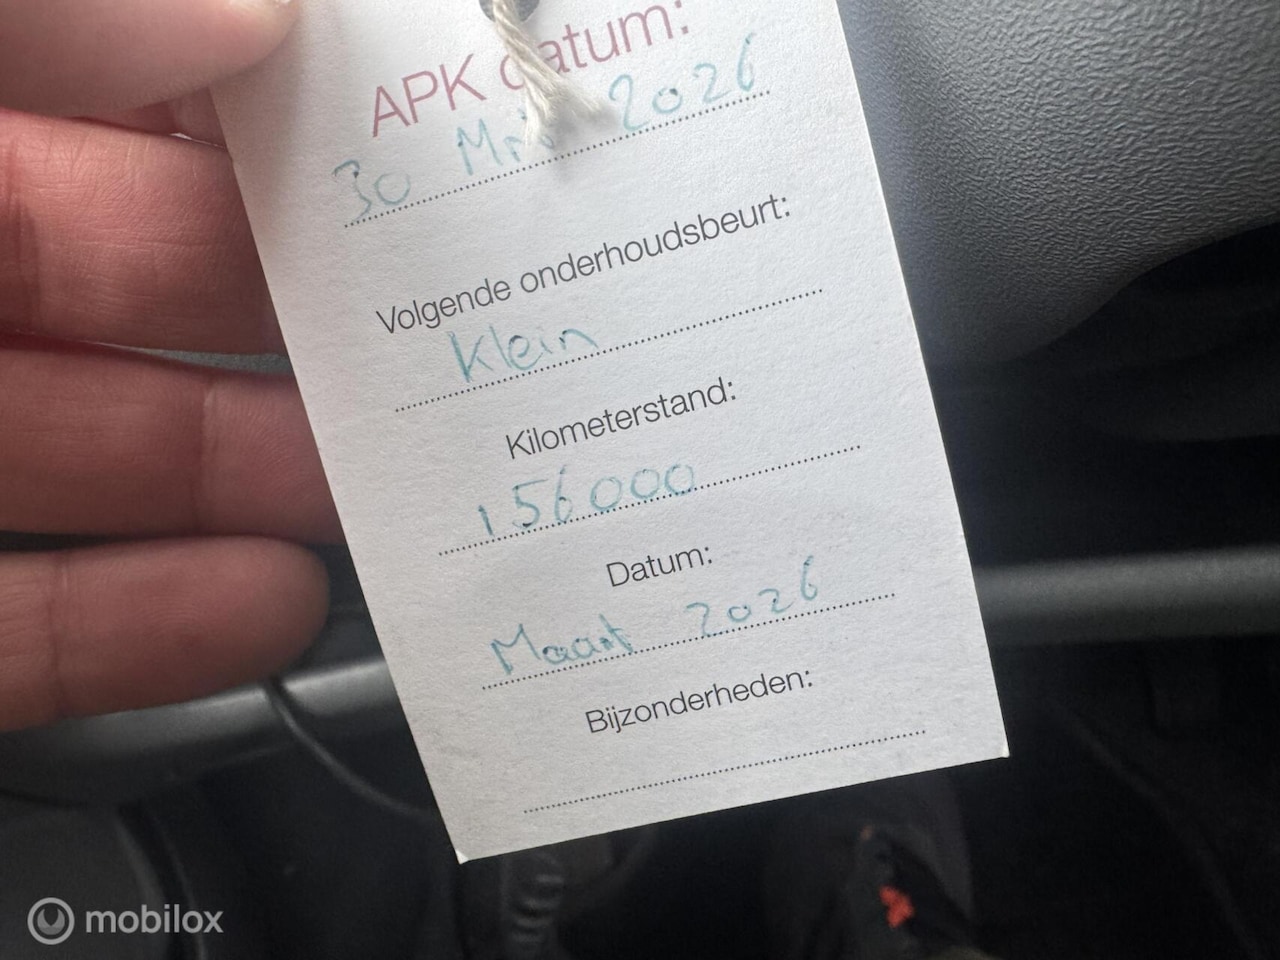 APK datum:
30 2026
Volgende onderhoudsbeurt:
Klein
Kilometerstand:
156000
Datum:
Maart 2026
Bijzonderheden:
mobilox